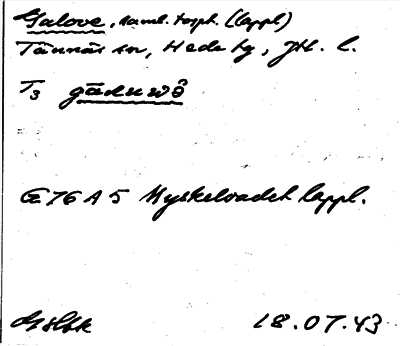 Galove, saml. torp. (lappl)
Tännäs sn, Hede tg, Jtl. l.
T3
G 76 A 5 Myskelvadet lappl.
18.07.43